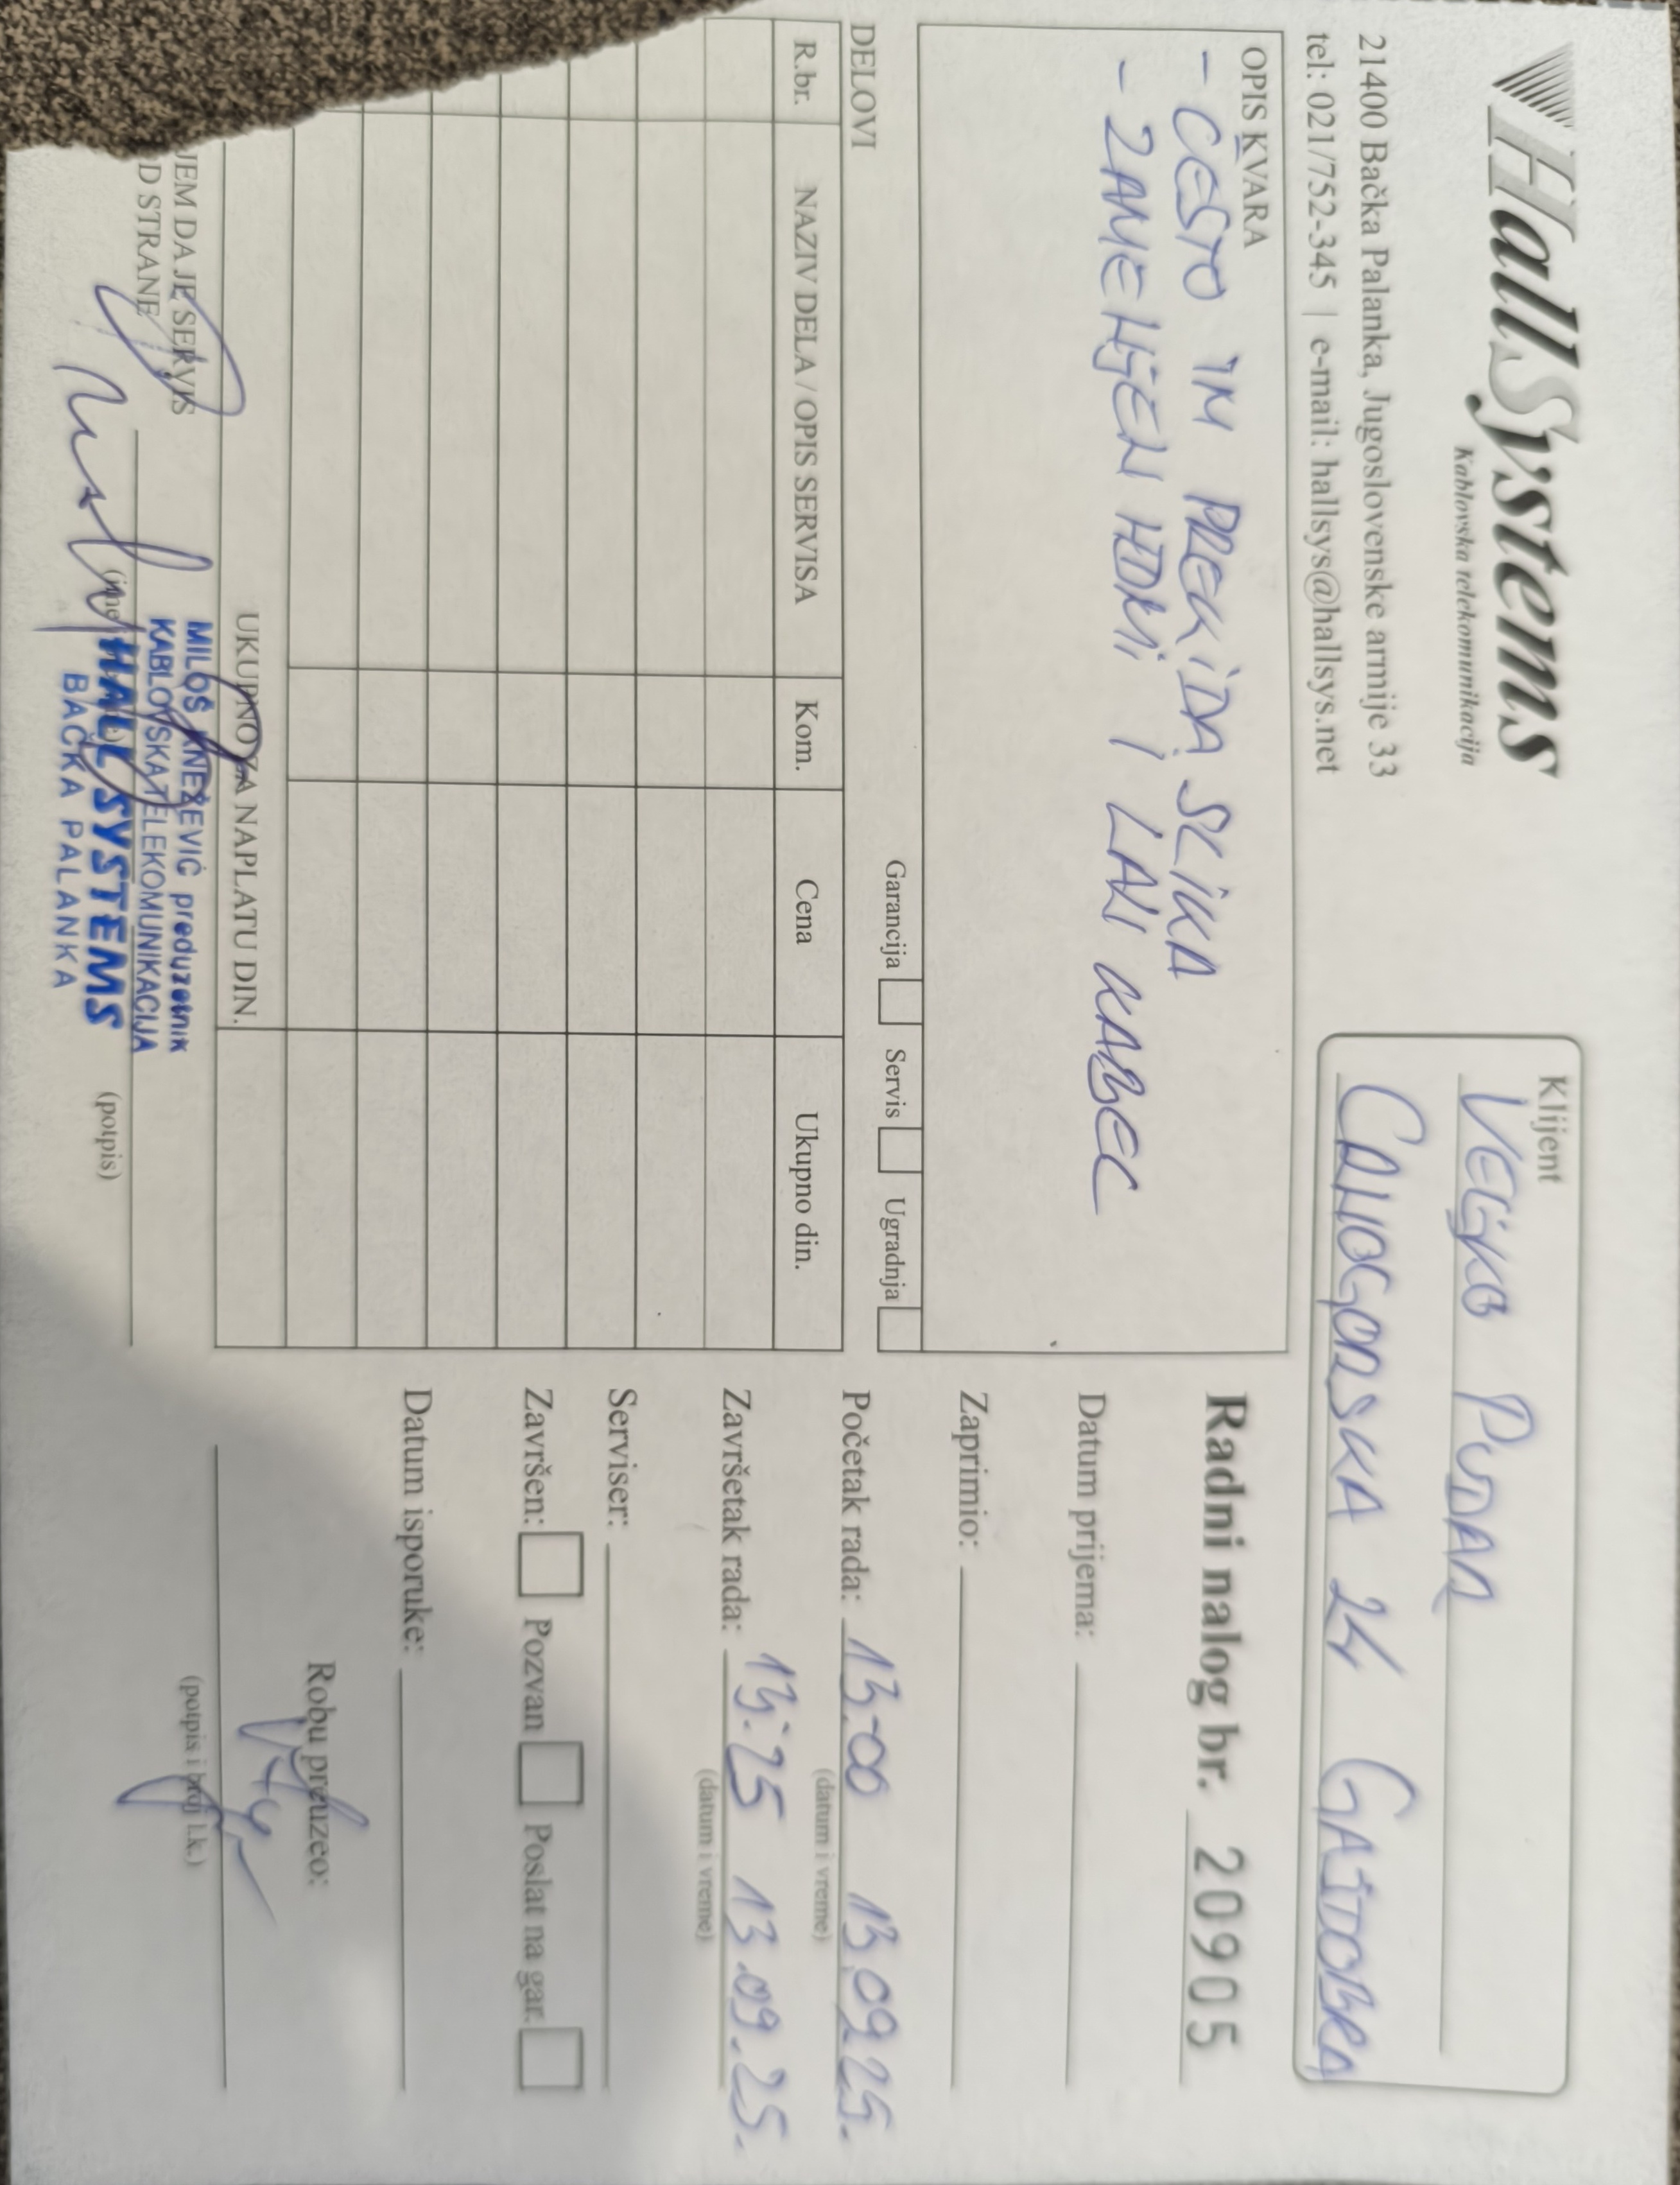 HallSystems
Kablovska telekomunikacija
21400 Bačka Palanka, Jugoslovenske armije 33
tel: 021/752-345 | e-mail: hallsys@hallsys.net
Klijent
VELJKO PUDAR
CRNOGORSKA 24 GAJDOBRA
OPIS KVARA
- CESTO IM PREKIDA SLIKA
- ZAMENJEN HDMI I LAN KABEL
Radni nalog br. 20905
Datum prijema:
Zaprimio:
Početak rada: 13:00 13.09.25.
(datum i vreme)
Završetak rada: 13:25 13.09.25.
(datum i vreme)
Serviser:
Završen: Pozvan Poslat na gar.
Datum isporuke:
Robu preuzeo:
(potpis i broj l.k.)
Garancija Servis Ugradnja
DELOVI
R.br. NAZIV DELA / OPIS SERVISA Kom. Cena Ukupno din.
UKUPNO ZA NAPLATU DIN.
JEM DA JE SERVIS
D STRANE
(ime
(potpis)
MILOŠ KNEŽEVIĆ preduzetnik
KABLOVSKA TELEKOMUNIKACIJA
HALL SYSTEMS
BAČKA PALANKA